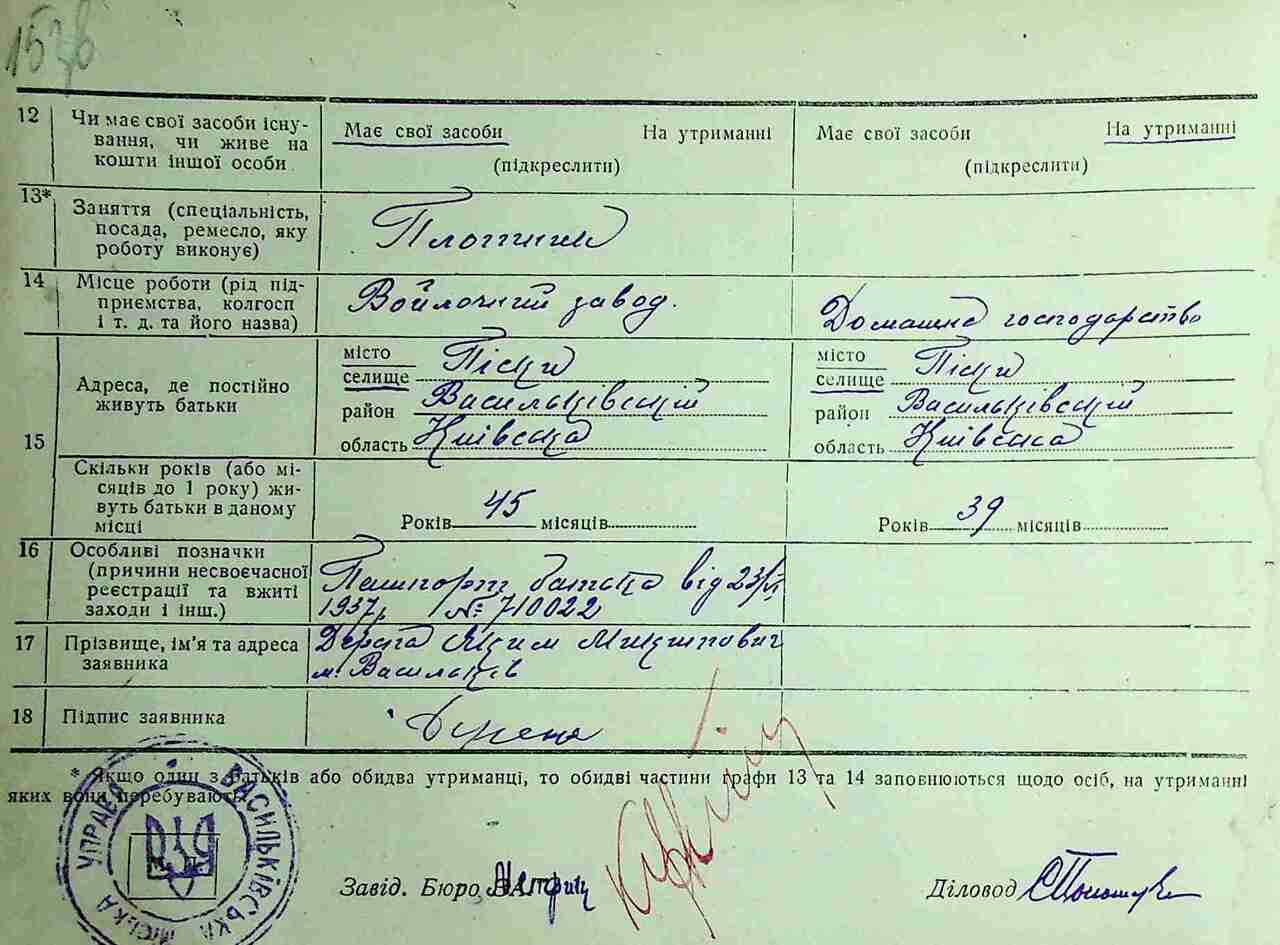 12 Чи має свої засоби існу-
вання, чи живе на
кошти іншої особи
Має свої засоби На утриманні
(підкреслити)
Має свої засоби На утриманні
(підкреслити)
13* Заняття (спеціальність,
посада, ремесло, яку
роботу виконує)
Плотник
14 Місце роботи (рід під-
приємства, колгосп
і т. д. та його назва)
Войлочний завод.
Домашнє господарство
15
Адреса, де постійно
живуть батьки
місто Піски
селище
район Васильківський
область Київська
місто Піски
селище
район Васильківський
область Київська
Скільки років (або мі-
сяців до 1 року) жи-
вуть батьки в даному
місці
Років 45 місяців
Років 39 місяців
16 Особливі позначки
(причини несвоєчасної
реєстрації та вжиті
заходи і інш.)
Пашпорт батька від 23/VI
1937р № 710022
17 Прізвище, ім'я та адреса
заявника
Яким Микитович
м. Васильків
18 Підпис заявника
* Якщо один з батьків або обидва утриманці, то обидві частини графи 13 та 14 заповнюються щодо осіб, на утриманні
яких вони перебувають.
ВАСИЛЬКІВСЬКА МІСЬКА УПРАВА
М. П.
Завід. Бюро ЗАГС
Діловод